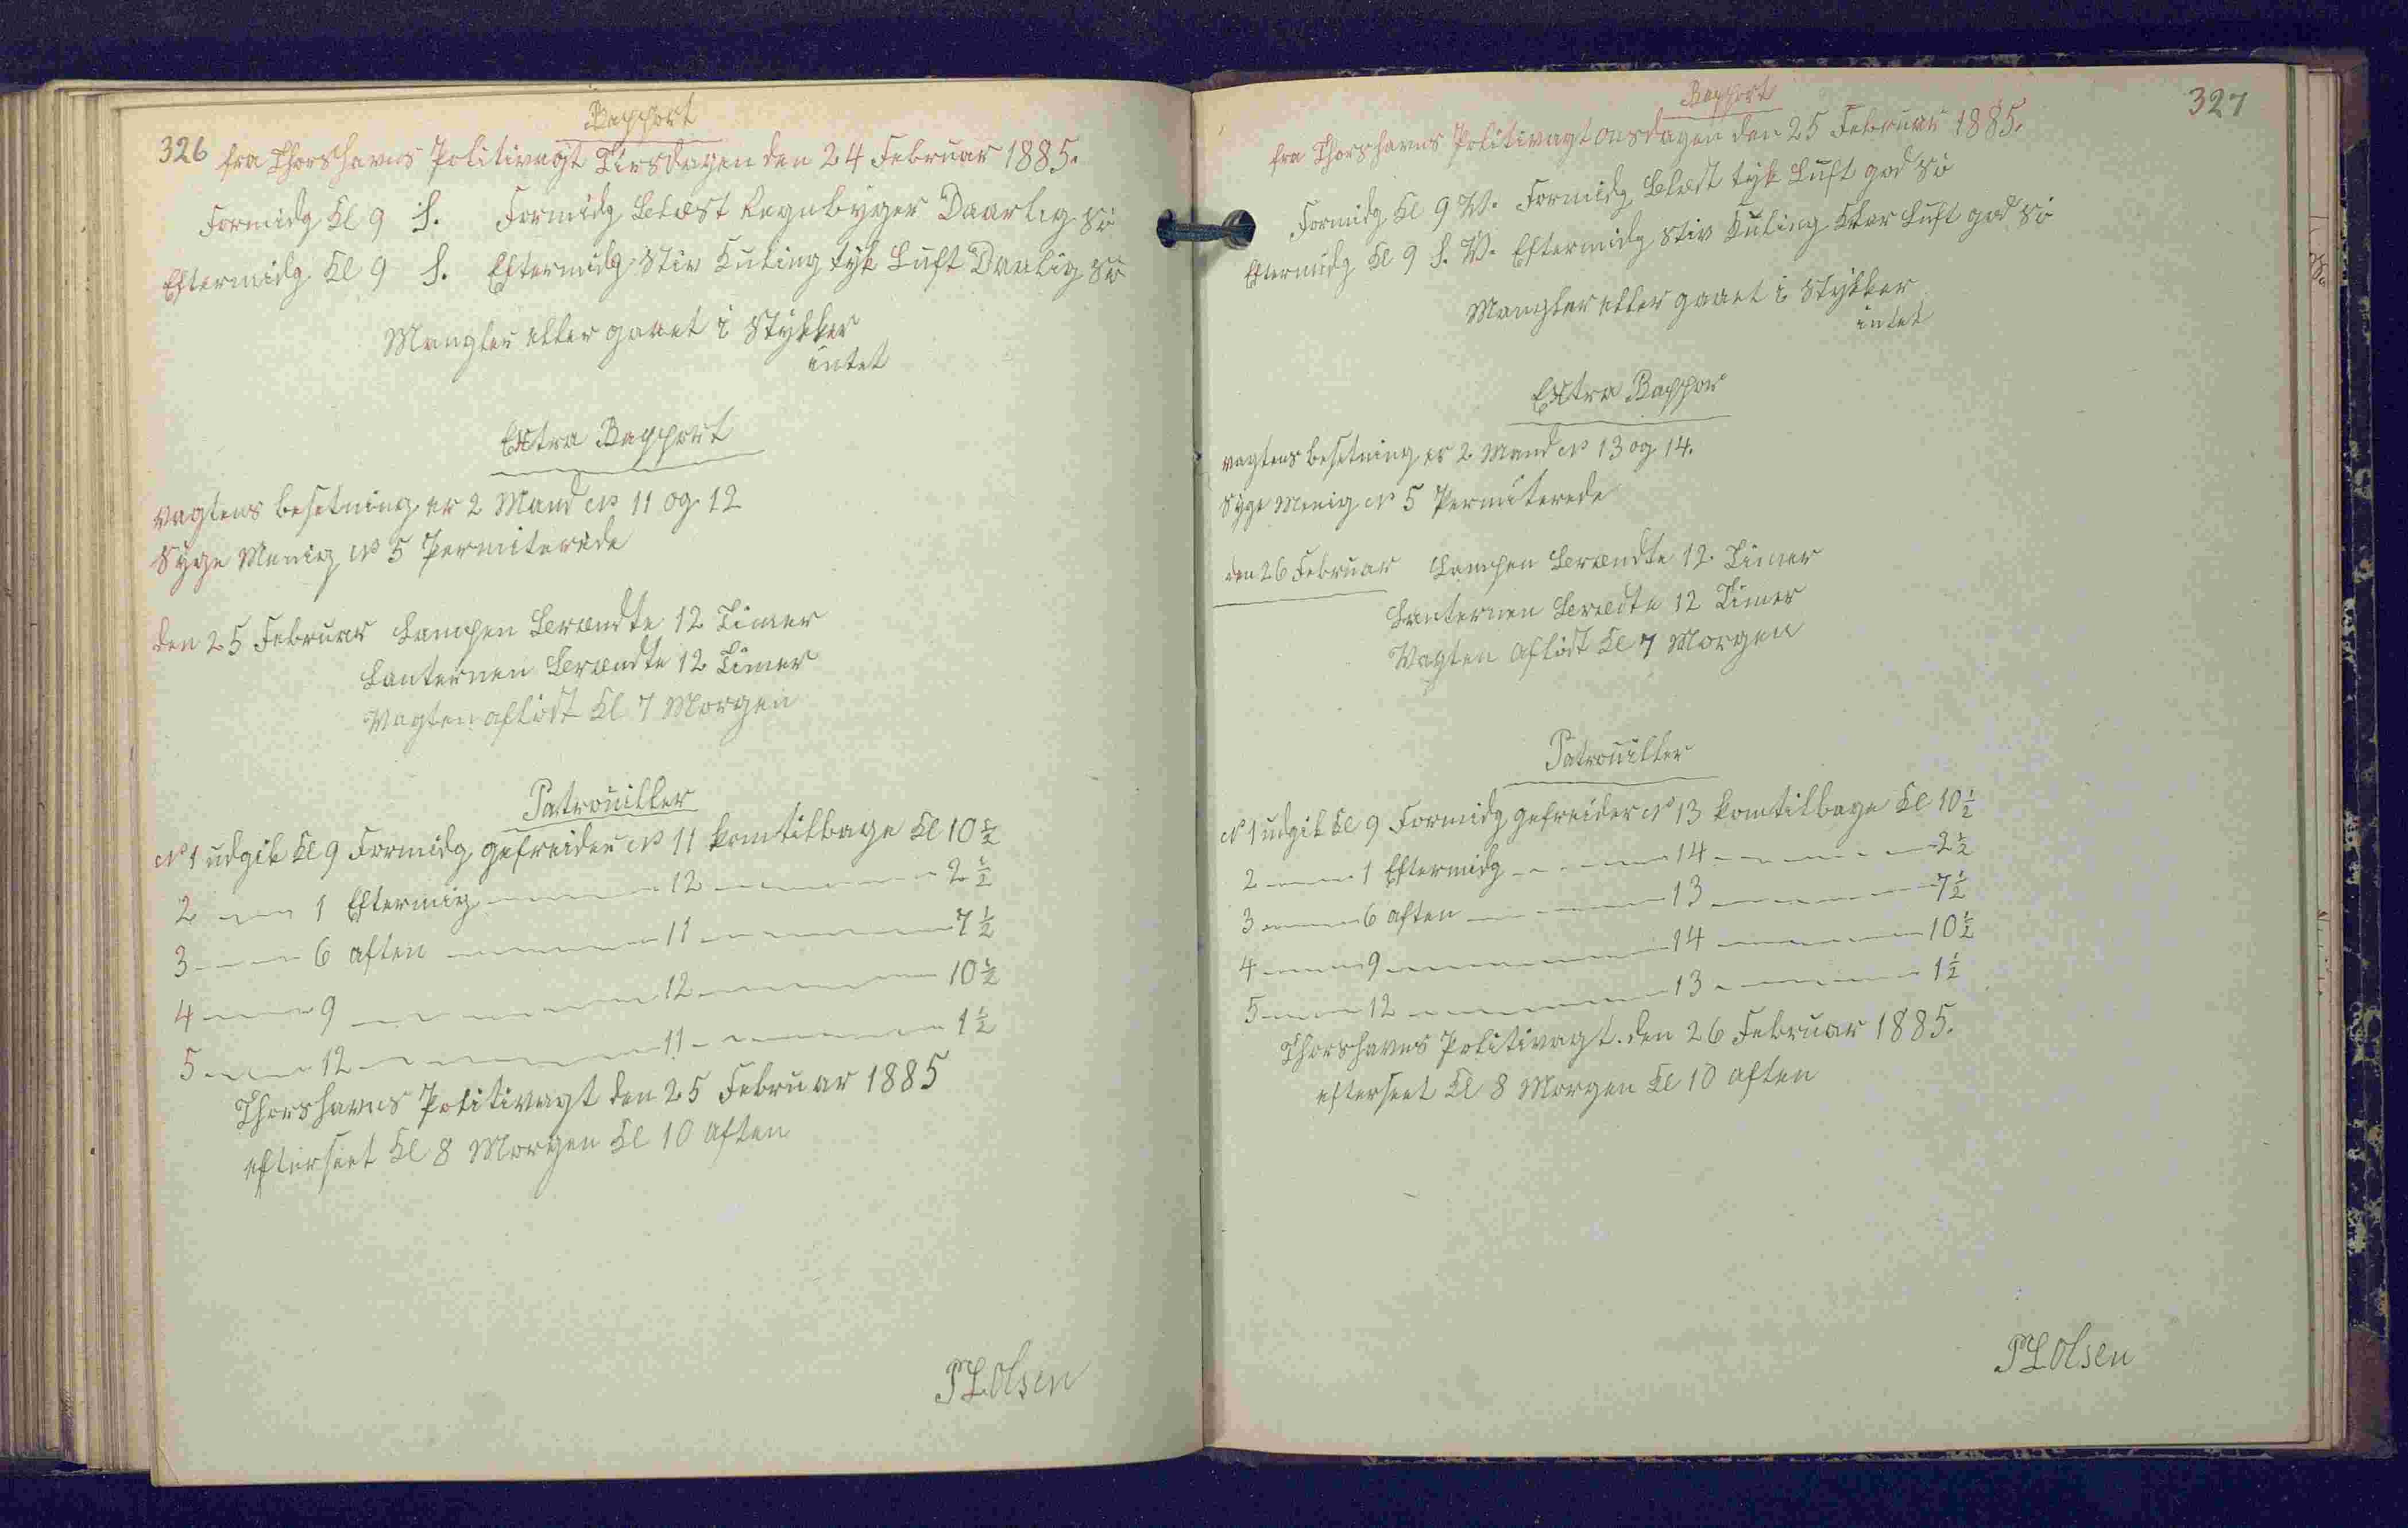 Rapport
326 fra Thorshavns Politivagt Tirsdagen den 24 Februar 1885.
Formidg Kl 9 S. Formidg Blæst Regnbyger Daarlig Sö
Eftermidg Kl 9 S. Eftermidg Stiv Kuling tyk Luft Daarlig Sö
Mangler eller gaaet i Stykker
intet
Extra Rapport
Vagtens besetning er 2 Mand No 11 og 12
Syge Menig No 5 Permiterede
den 25 Februar Lampen Brændte 12 Timer
Lanternen Brændte 12 Timer
Vagten aflöst Kl 7 Morgen
Patrouiller
No 1 udgik Kl 9 Formidg gefreider No 11 kom tilbage Kl 10 1/2
2 — 1 Eftermig — 12 — 2 1/2
3 — 6 aften — 11 — 7 1/2
4 — 9 — 12 — 10 1/2
5 — 12 — 11 — 1 1/2
Thorshavns Politivagt den 25 Februar 1885
efterseet Kl 8 Morgen Kl 10 aften
PL Olsen
Rapport
327
fra Thorshavns Politivagt Onsdagen den 25 Februar 1885.
Formidg Kl 9 V. Formidg Blæst tyk Luft god Sö
Eftermidg Kl 9 S. V. Eftermidg Stiv Kuling Klar Luft god Sö
Mangler eller gaaet i Stykker
intet
Extra Rappor
vagtens besetning er 2 Mand No 13 og 14.
Syge Menig No 5 Permiterede
den 26 Februar Lampen Brændte 12 Timer
Lanternen Brædte 12 Timer
Vagten aflöst Kl 7 Morgen
Patrouiller
No 1 udgik Kl 9 Formidg gefreider No 13 kom tilbage Kl 10 1/2
2 — 1 Eftermidg — 14 — 2 1/2
3 — 6 aften — 13 — 7 1/2
4 — 9 — 14 — 10 1/2
5 — 12 — 13 — 1 1/2
Thorshavns Politivagt. den 26 Februar 1885.
efterseet Kl 8 Morgen Kl 10 aften
PL Olsen